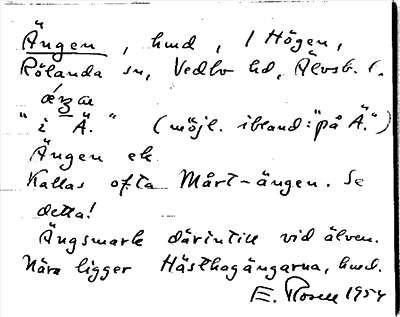 Ängen, hmd, i Högen,
Rölanda sn, Vedbo hd, Älvsb. l.
"i Ä." (möjl. ibland: "på Ä.")
Ängen ek
Kallas ofta Mårt-ängen. Se
detta!
Ängsmark därintill vid älven.
Nära ligger Hästhagängarna, hmd.
E. Rosell 1954